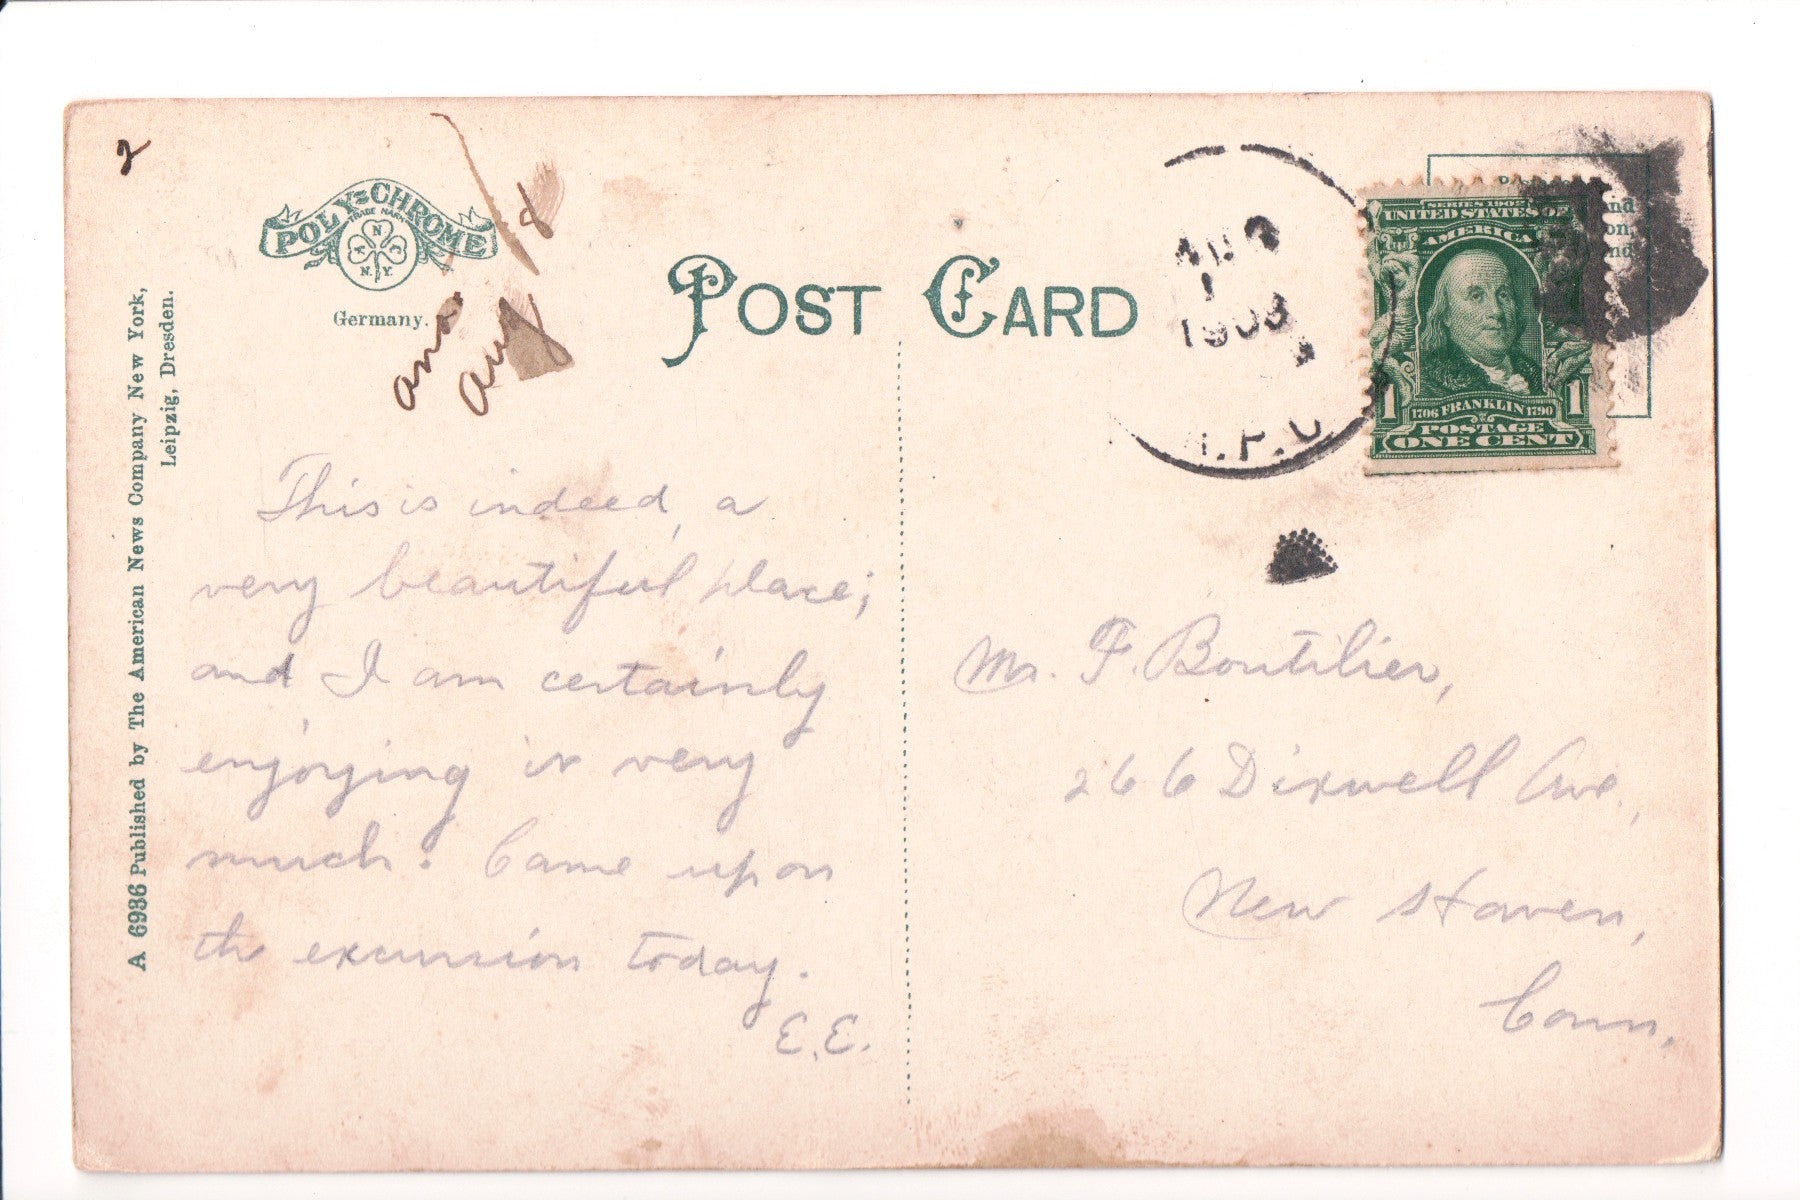 2
POLY-CHROME
TRADE MARK
A N C
N.Y.
Germany.
ans
Aug 8
A 6936 Published by The American News Company New York,
Leipzig, Dresden.
POST CARD
AUG
1
1908
R.P.O
SERIES 1902
UNITED STATES OF
AMERICA
1 1
1706 FRANKLIN 1790
POSTAGE
ONE CENT
This is indeed, a
very beautiful place;
and I am certainly
enjoying it very
much. Came upon
the excursion today.
E.E.
Mr. F. Boutilier,
266 Dixwell Ave,
New Haven,
Conn.